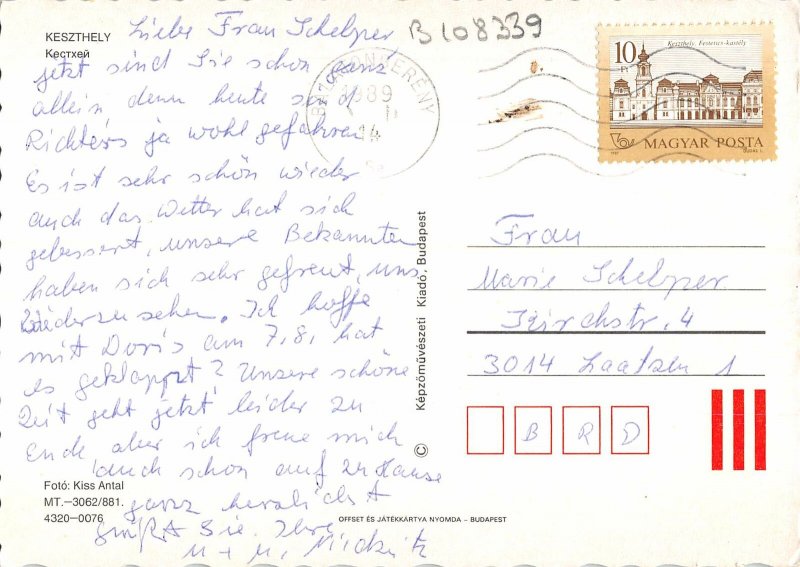 KESZTHELY
Кестхей
Liebe Frau Schelper
jetzt sind Sie schon ganz
allein denn heute sind
Richters ja wohl gefahren
Es ist sehr schön wieder
auch das Wetter hat sich
gebessert, unsere Bekannten
haben sich sehr gefreut, uns
wiederzusehen. Ich hoffe
mit Doris am 7.8. hat
es geklappt? Unsere schöne
Zeit geht jetzt leider zu
Ende, aber ich freue mich
auch schon auf zu Hause
ganz herzlichst
grüßt Sie Ihre
M + M.
Fotó: Kiss Antal
MT.–3062/881.
4320–0076
B 108339
1989
14
10
Ft
Keszthely, Festetics-kastély
MAGYAR POSTA
Frau
Marie Schelper
Kirchstr. 4
3014 Laatzen 1
B R D
© Képzőművészeti Kiadó, Budapest
OFFSET ÉS JÁTÉKKÁRTYA NYOMDA – BUDAPEST